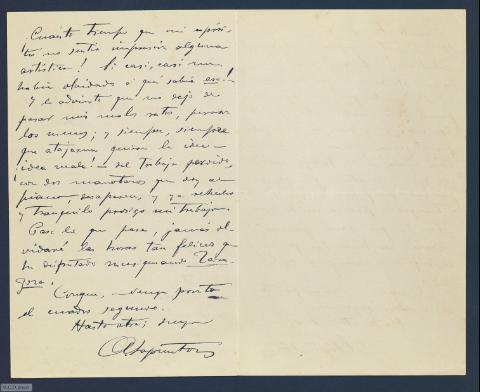 ¡Cuánto tiempo que mi espíri-
tu no sentía impresión alguna
artística! Si casi, casi me
había olvidado a qué sabía eso!
Y le advierto que no dejo de
pasar mis malos ratos, pensar
los menos; y siempre, siempre
que atajarme quiere la idea –
¡idea mala! – del trabajo perdido,
con dos manotazos que doy al
piano, desaparece, y ya rehecho
y tranquilo prosigo mi trabajo.
Pase lo que pase, jamás ol-
vidaré las horas tan felices que
he disfrutado musiqueando
Conque, – venga pronto
el cuadro segundo.
Hasta otra; suyo